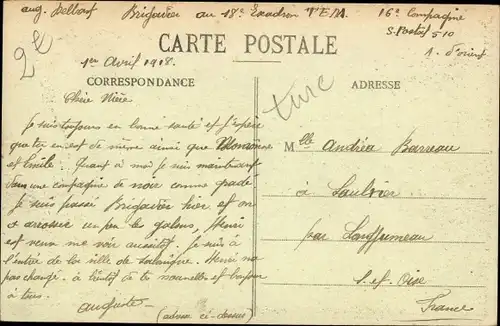 aug. Delbart Brigadier au 18e Escadron T.E.M. 16e Compagnie
S. Postal 510
A. d'orient
2€
CARTE POSTALE
1er Avril 1918.
CORRESPONDANCE
ADRESSE
turc
Chère Nièce
Je suis toujours en bonne santé et j'espère
que toi en est de même ainsi que
et Emile. Quant à moi je suis maintenant
dans une compagnie de noir comme gradé
Je suis passé Brigadier hier et on
a arrosé un peu le galons, Henri
est venu me voir aussitôt. Je suis à
l'entrée de la ville de Salonique. Henri n'a
pas changé. à bientôt de tes nouvelles et bonjour
à tous.
auguste
(adresse ci-dessus)
Mlle Andréa Barreau
à Saulxier
par Longjumeau
S.-et-Oise
France